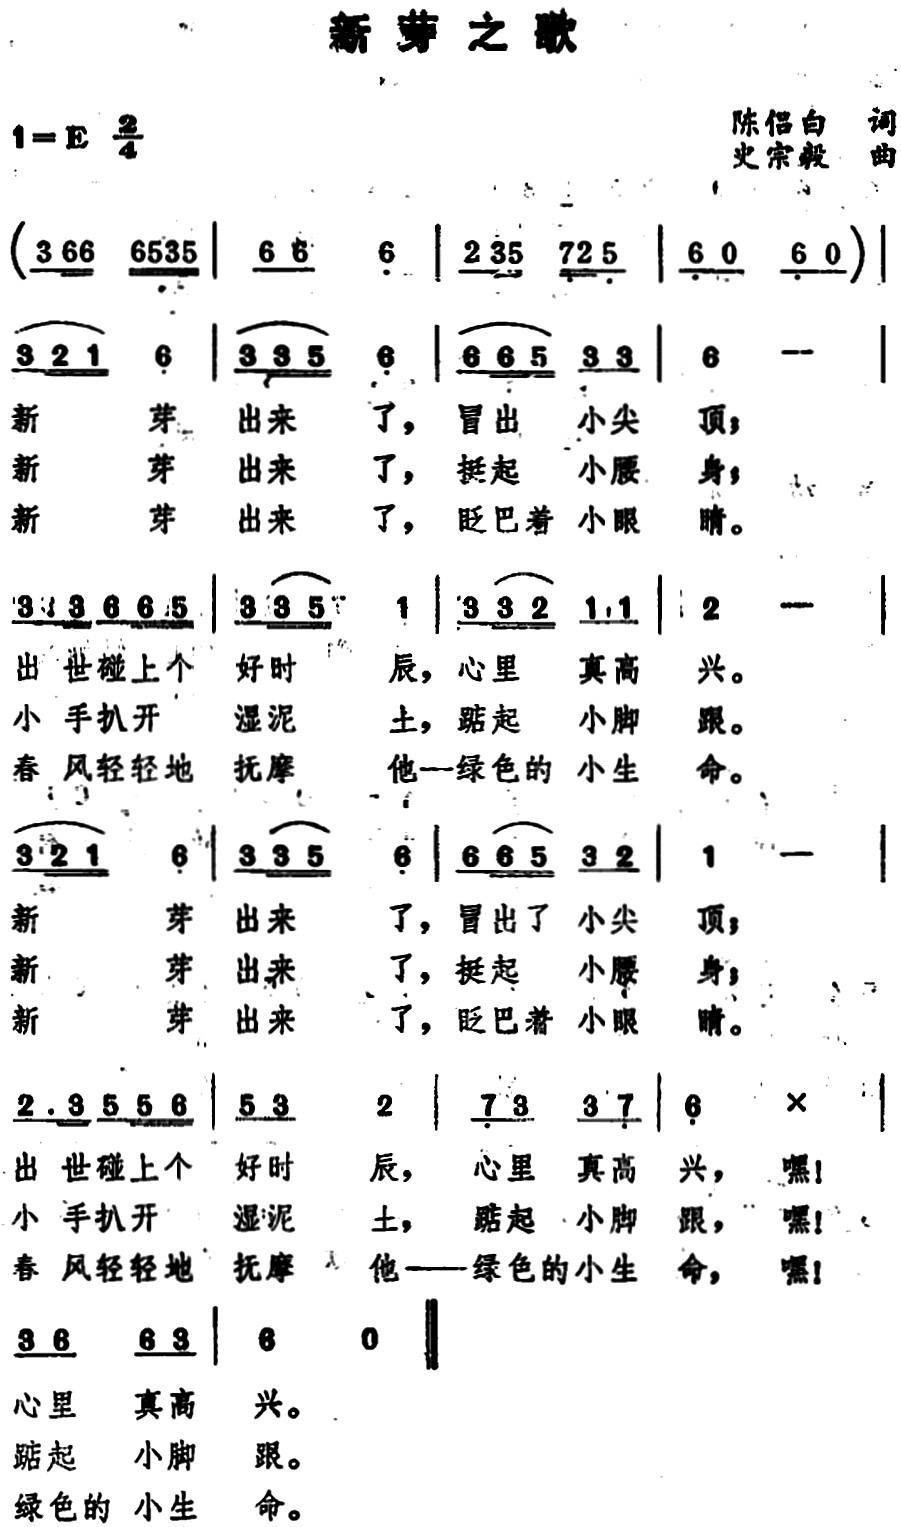 新芽之歌
1=E 2/4
陈侣白 词
史宗毅 曲
(3 66 6535 | 6 6 6 | 2 35 725 | 6 0 6 0) |
3 2 1 6 | 3 3 5 6 | 6 6 5 3 3 | 6 — |
新 芽 出来 了, 冒出 小尖 顶;
新 芽 出来 了, 挺起 小腰 身;
新 芽 出来 了, 眨巴着 小眼 睛。
3 3 6 6 5 | 3 3 5 1 | 3 3 2 1 1 | 2 — |
出 世碰上个 好时 辰, 心里 真高 兴。
小 手扒开 湿泥 土, 踮起 小脚 跟。
春 风轻轻地 抚摩 他—绿色的 小生 命。
3 2 1 6 | 3 3 5 6 | 6 6 5 3 2 | 1 — |
新 芽 出来 了, 冒出了 小尖 顶;
新 芽 出来 了, 挺起 小腰 身;
新 芽 出来 了, 眨巴着 小眼 睛。
2 . 3 5 5 6 | 5 3 2 | 7 3 3 7 | 6 × |
出 世碰上个 好时 辰, 心里 真高 兴, 嘿!
小 手扒开 湿泥 土, 踮起 小脚 跟, 嘿!
春 风轻轻地 抚摩 他——绿色的小生 命, 嘿!
3 6 6 3 | 6 0 ‖
心里 真高 兴。
踮起 小脚 跟。
绿色的 小生 命。